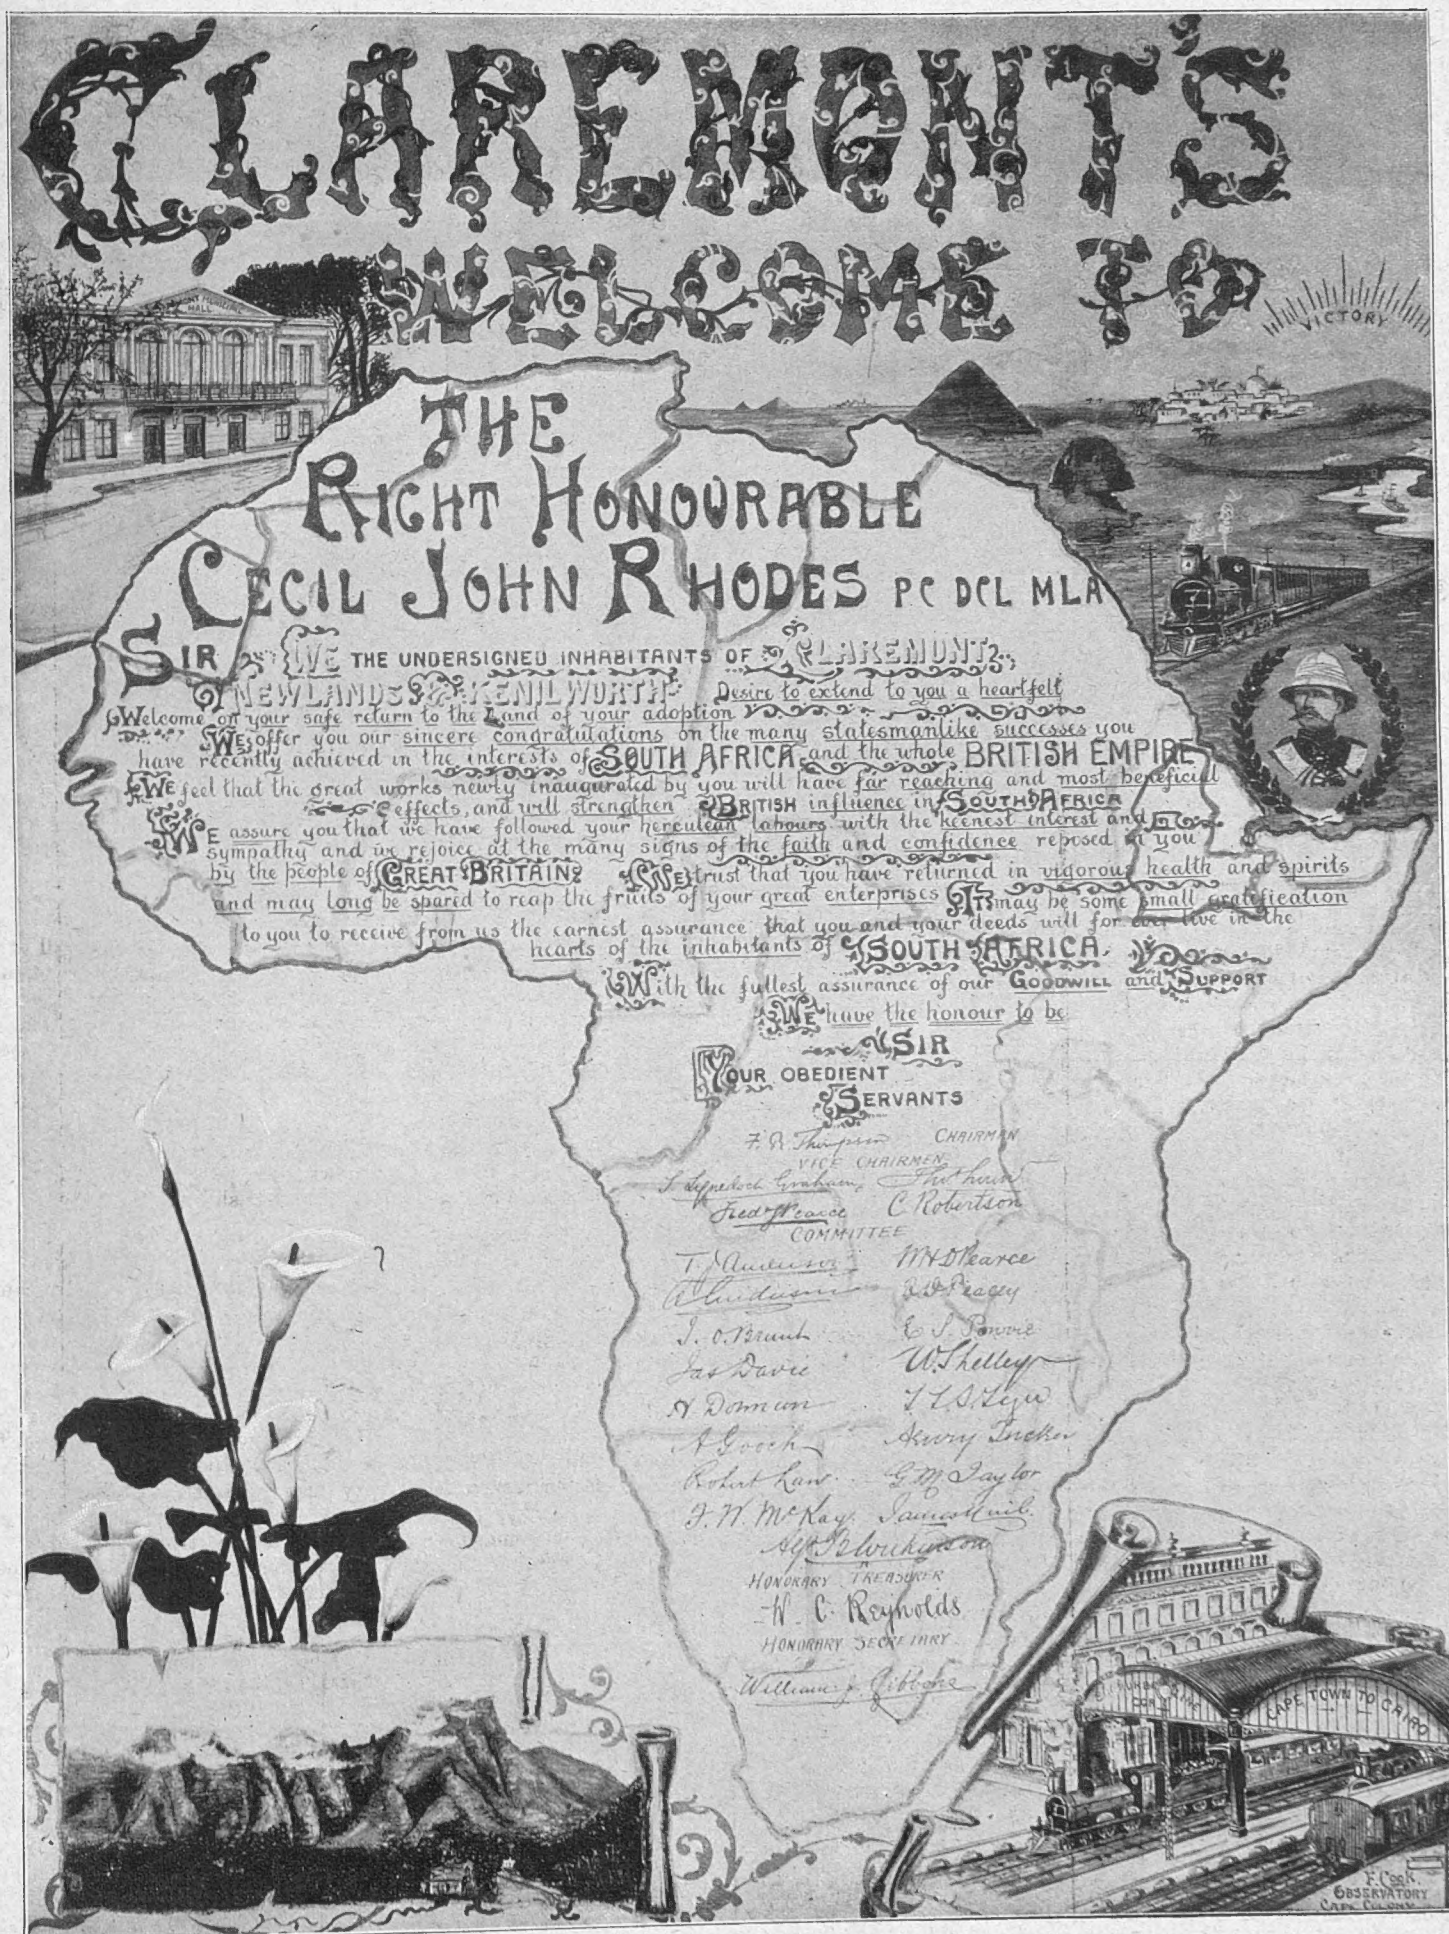 CLAREMONT'S
WELCOME TO
HALL
VICTORY
THE
RIGHT HONOURABLE
CECIL JOHN RHODES PC DCL MLA
SIR WE THE UNDERSIGNED INHABITANTS OF CLAREMONT
NEWLANDS & KENILWORTH Desire to extend to you a heartfelt
Welcome on your safe return to the Land of your adoption
We offer you our sincere congratulations on the many statesmanlike successes you
have recently achieved in the interests of SOUTH AFRICA and the whole BRITISH EMPIRE
WE feel that the great works newly inaugurated by you will have far reaching and most beneficial
effects, and will strengthen BRITISH influence in SOUTH AFRICA
WE assure you that we have followed your herculean labours with the keenest interest and
sympathy and we rejoice at the many signs of the faith and confidence reposed in you
by the people of GREAT BRITAIN We trust that you have returned in vigorous health and spirits
and may long be spared to reap the fruits of your great enterprises It may be some small gratification
to you to receive from us the earnest assurance that you and your deeds will for ever live in the
hearts of the inhabitants of SOUTH AFRICA.
With the fullest assurance of our GOODWILL and SUPPORT
WE have the honour to be
SIR
YOUR OBEDIENT
SERVANTS
F. R. Thompson CHAIRMAN
VICE CHAIRMEN
S Lynedoch Graham
Fred J Pearce C Robertson
COMMITTEE
T. J Anderson W H D Pearce
Peacey
J. O. Brunt E S. Powrie
Jas Davie W. Shelley
A Gooch Henry Tucker
Robert Law G M Taylor
F. W. McKay.
HONORARY TREASURER
W C Reynolds
HONORARY SECRETARY
William J. Gibbons
SUBURBAN LINE
CAPE TOWN TO CAIRO
F. COOK.
OBSERVATORY
CAPE COLONY